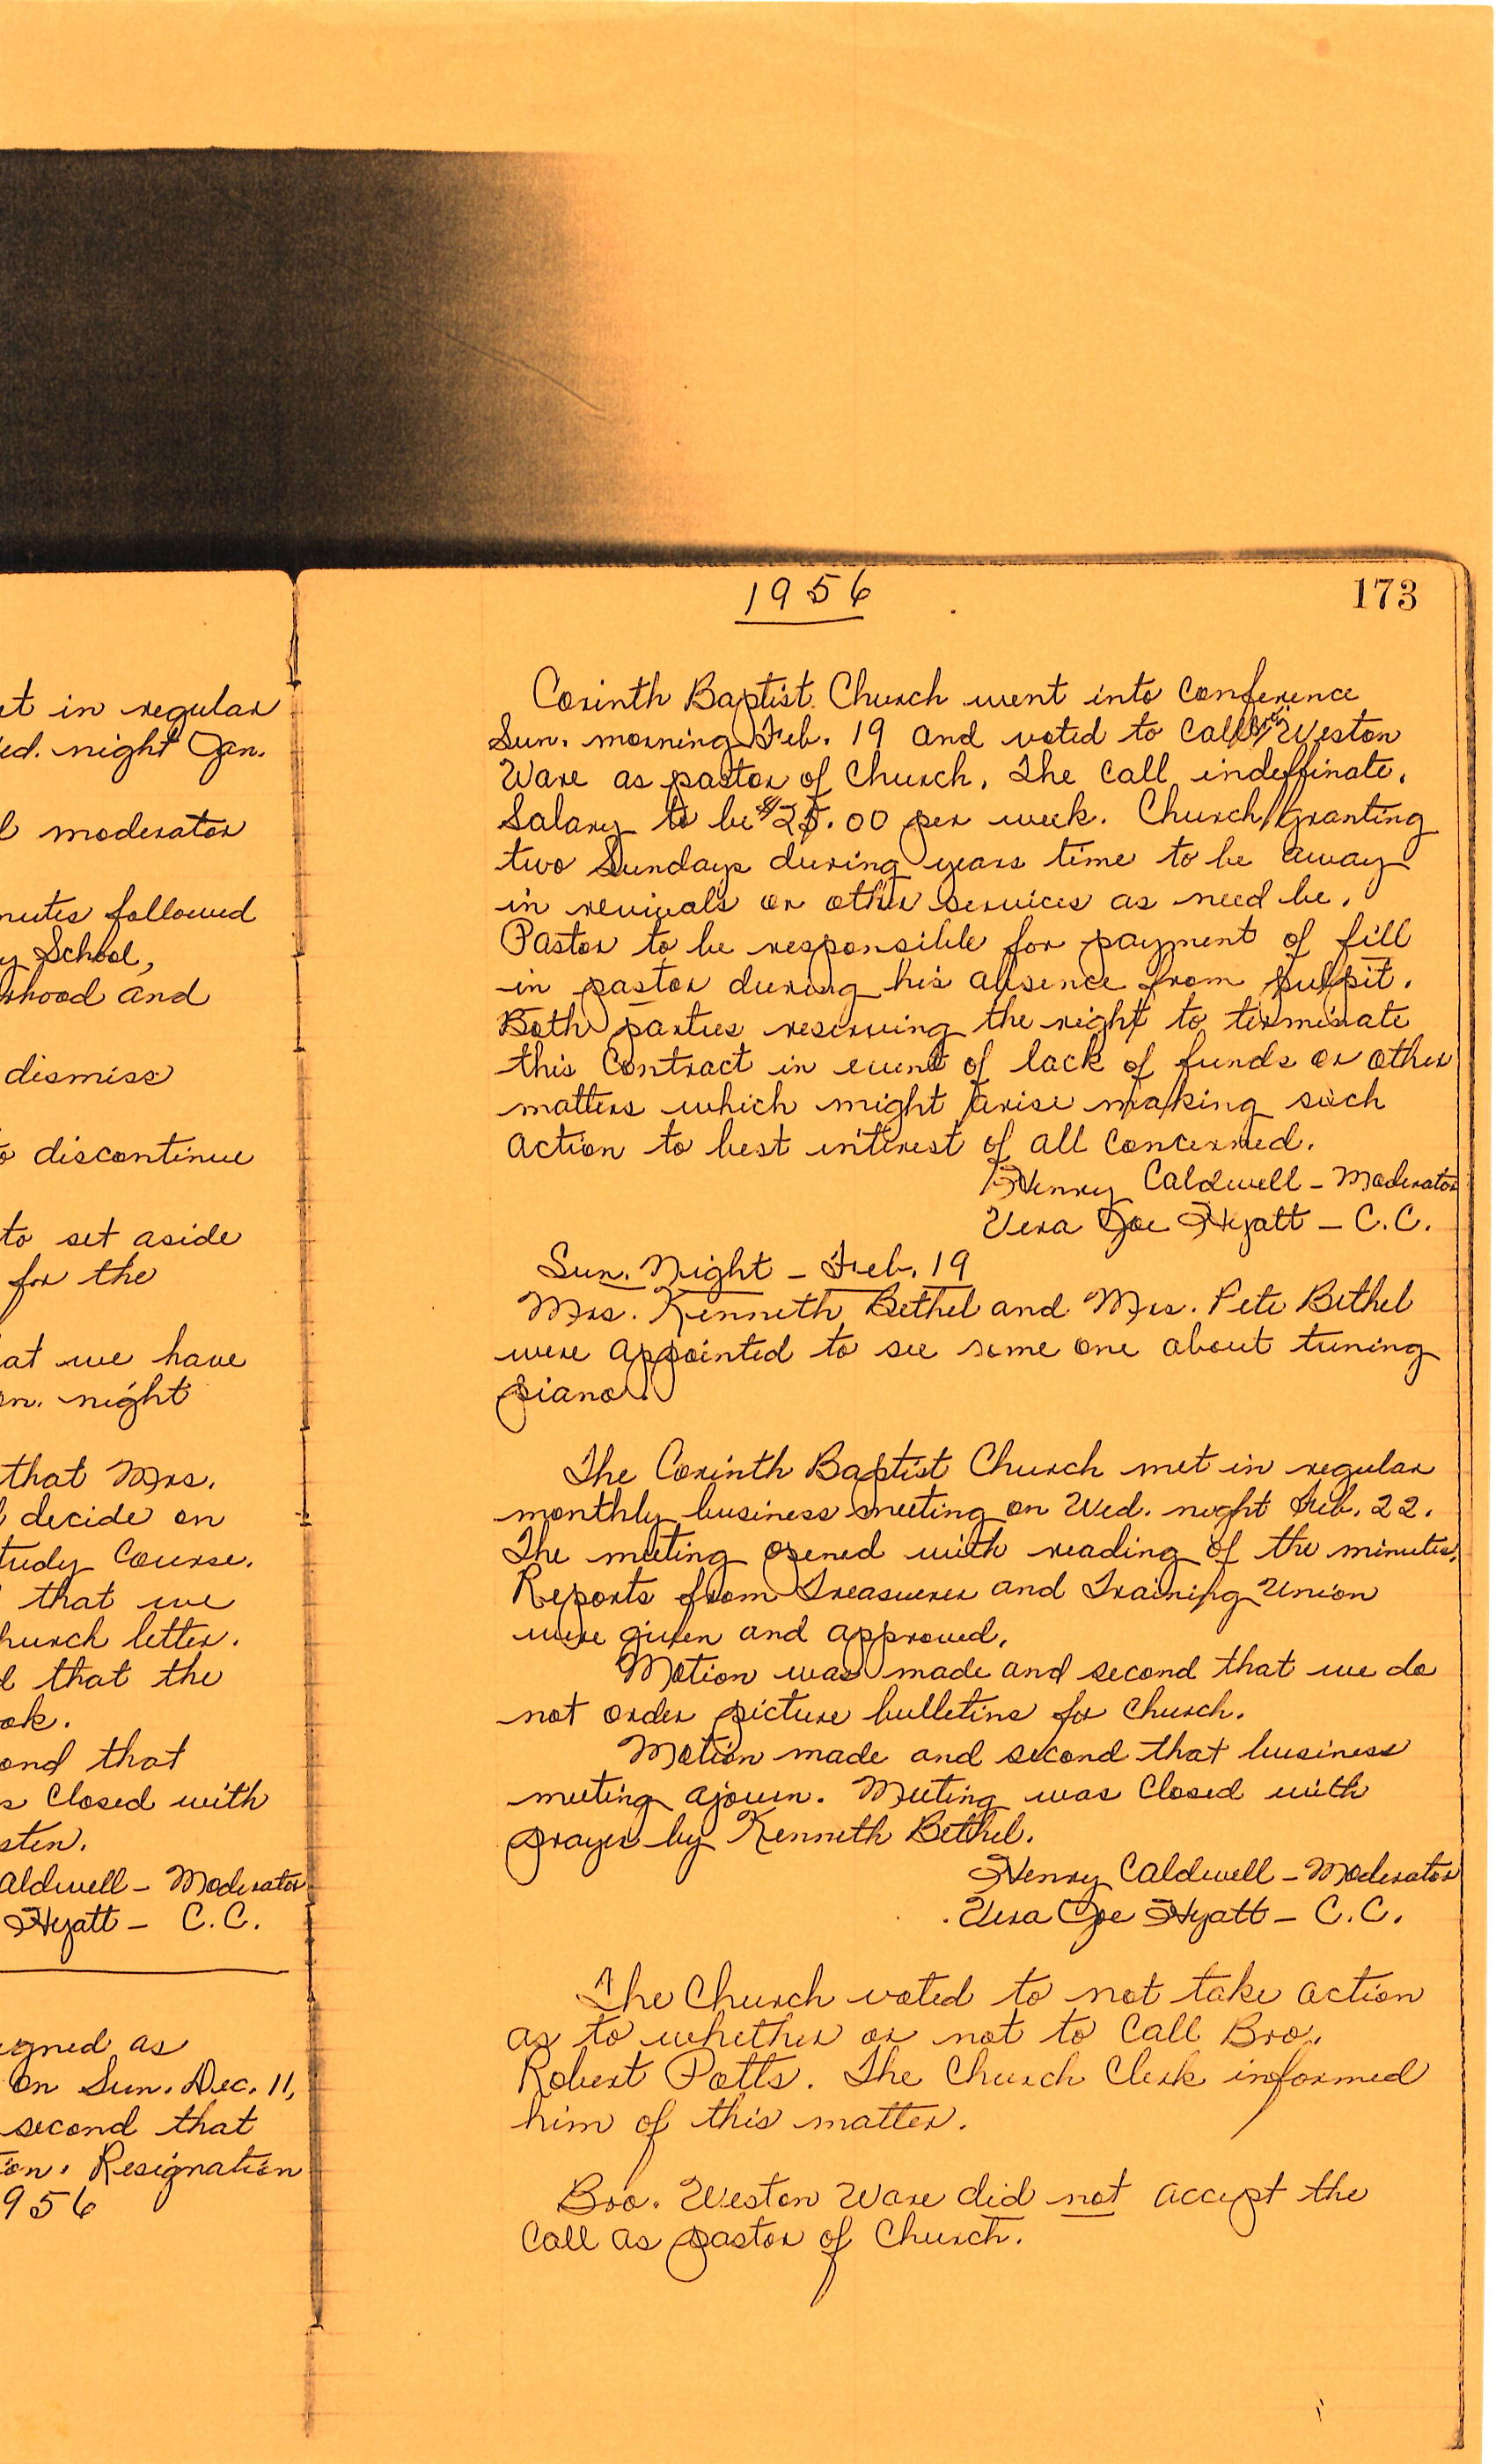 et in regular
ed. night Jan.
l moderator
nutes followed
y School,
rhood and
dismiss
o discontinue
to set aside
for the
at we have
n. night
that Mrs.
decide on
tudy Course.
that we
hurch letter.
d that the
ok.
ond that
s closed with
sten.
aldwell - Moderator
Hyatt - C.C.
igned as
On Sun. Dec. 11,
second that
ion. Resignation
956
1956
173
Corinth Baptist Church went into conference
Sun. morning Feb. 19 and voted to call Bro. Weston
Ware as pastor of Church. The call indeffinate.
Salary to be $25.00 per week. Church granting
two Sundays during years time to be away
in revivals or other services as need be.
Pastor to be responsible for payment of fill
in pastor during his absence from pulpit.
Both parties reserving the right to terminate
this contract in event of lack of funds or other
matters which might arise making such
action to best interest of all concerned.
Henry Caldwell - Moderator
Vera Joe Hyatt - C.C.
Sun. Night - Feb. 19
Mrs. Kenneth Bethel and Mrs. Pete Bethel
were appointed to see some one about tuning
piano.
The Corinth Baptist Church met in regular
monthly business meeting on Wed. night Feb. 22.
The meeting opened with reading of the minutes.
Reports from Treasurer and Training Union
were given and approved.
Motion was made and second that we do
not order picture bulletins for church.
Motion made and second that business
meeting ajourn. Meeting was closed with
prayer by Kenneth Bethel.
Henry Caldwell - Moderator
Vera Joe Hyatt - C.C.
The Church voted to not take action
as to whether or not to call Bro.
Robert Potts. The Church Clerk informed
him of this matter.
Bro. Weston Ware did not accept the
call as pastor of Church.